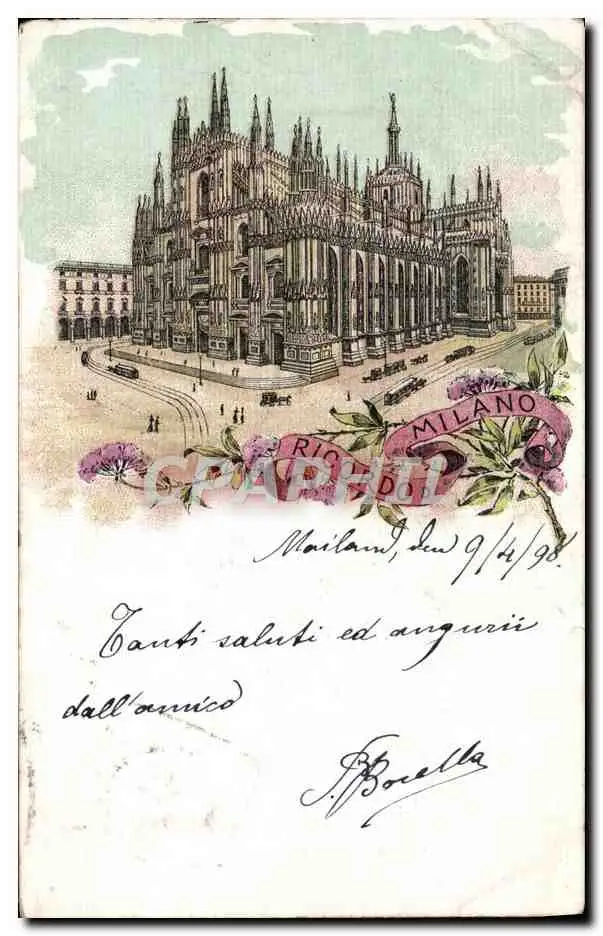 RICORDO
MILANO
CPAPHIL
SHOP
Mailand, den 9/4/98.
Tanti saluti ed angurii
dall'amico
Borella